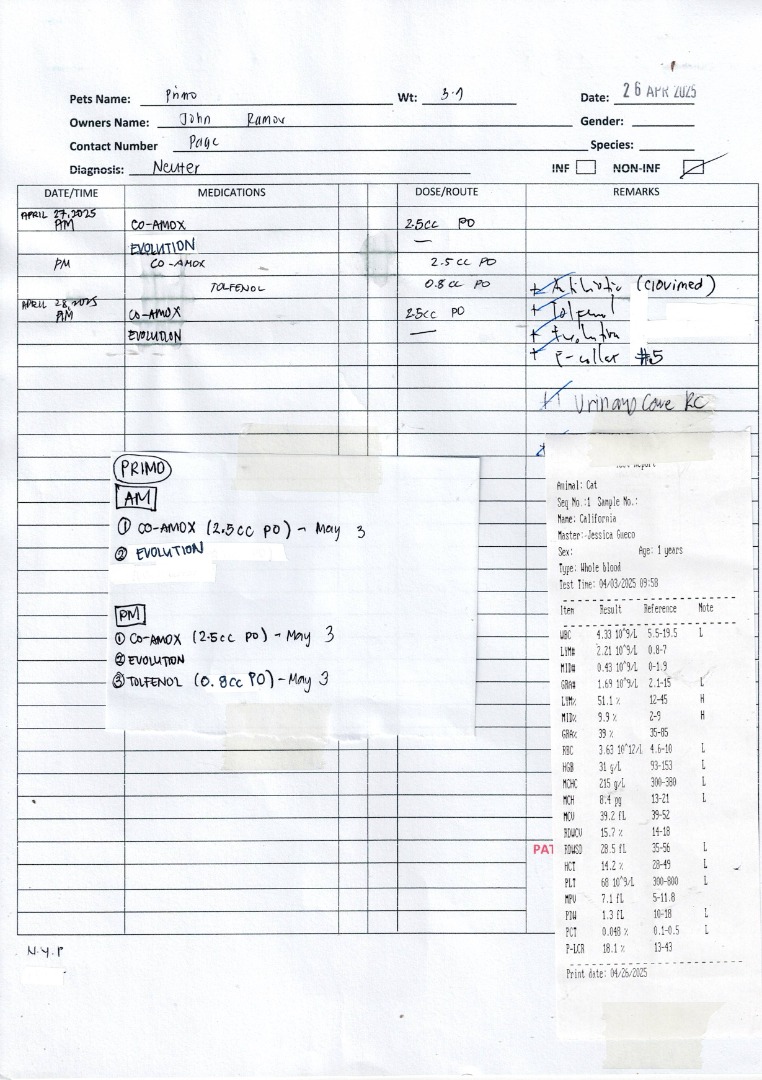 Pets Name: Primo Wt: 3.1 Date: 26 APR 2025
Owners Name: John Gender:
Contact Number Page Species:
Diagnosis: Neuter INF NON-INF
DATE/TIME MEDICATIONS DOSE/ROUTE REMARKS
APRIL 27,2025
AM CO-AMOX 2.5cc PO
EVOLUTION —
PM CO-AMOX 2.5 cc PO
TOLFENOL 0.8 cc PO
+ Antibiotic (Clovimed)
APRIL 28,2025
AM CO-AMOX 2.5cc PO
+ Tolfenol
EVOLUTION —
+ Evolution
+ E-collar #5
Urinary Care RC
PRIMO
AM
① CO-AMOX (2.5CC PO) - May 3
② EVOLUTION
PM
① CO-AMOX (2.5cc PO) - May 3
② EVOLUTION
③ TOLFENOL (0.8cc PO) - May 3
Test Report
Animal: Cat
Seq No.:1 Sample No.:
Name: California
Master: Jessica Gueco
Sex: Age: 1 years
Type: Whole blood
Test Time: 04/03/2025 09:58
Item Result Reference Note
WBC 4.33 10^9/L 5.5-19.5 L
LYM# 2.21 10^9/L 0.8-7
MID# 0.43 10^9/L 0-1.9
GRA# 1.69 10^9/L 2.1-15 L
LYM% 51.1 % 12-45 H
MID% 9.9 % 2-9 H
GRA% 39 % 35-85
RBC 3.63 10^12/L 4.6-10 L
HGB 31 g/L 93-153 L
MCHC 215 g/L 300-380 L
MCH 8.4 pg 13-21 L
MCV 39.2 fL 39-52
RDWCV 15.7 % 14-18
RDWSD 28.5 fL 35-56 L
HCT 14.2 % 28-49 L
PLT 68 10^9/L 300-800 L
MPV 7.1 fL 5-11.8
PDW 1.3 fL 10-18 L
PCT 0.048 % 0.1-0.5 L
P-LCR 18.1 % 13-43
Print date: 04/26/2025
PAT
N.Y.P